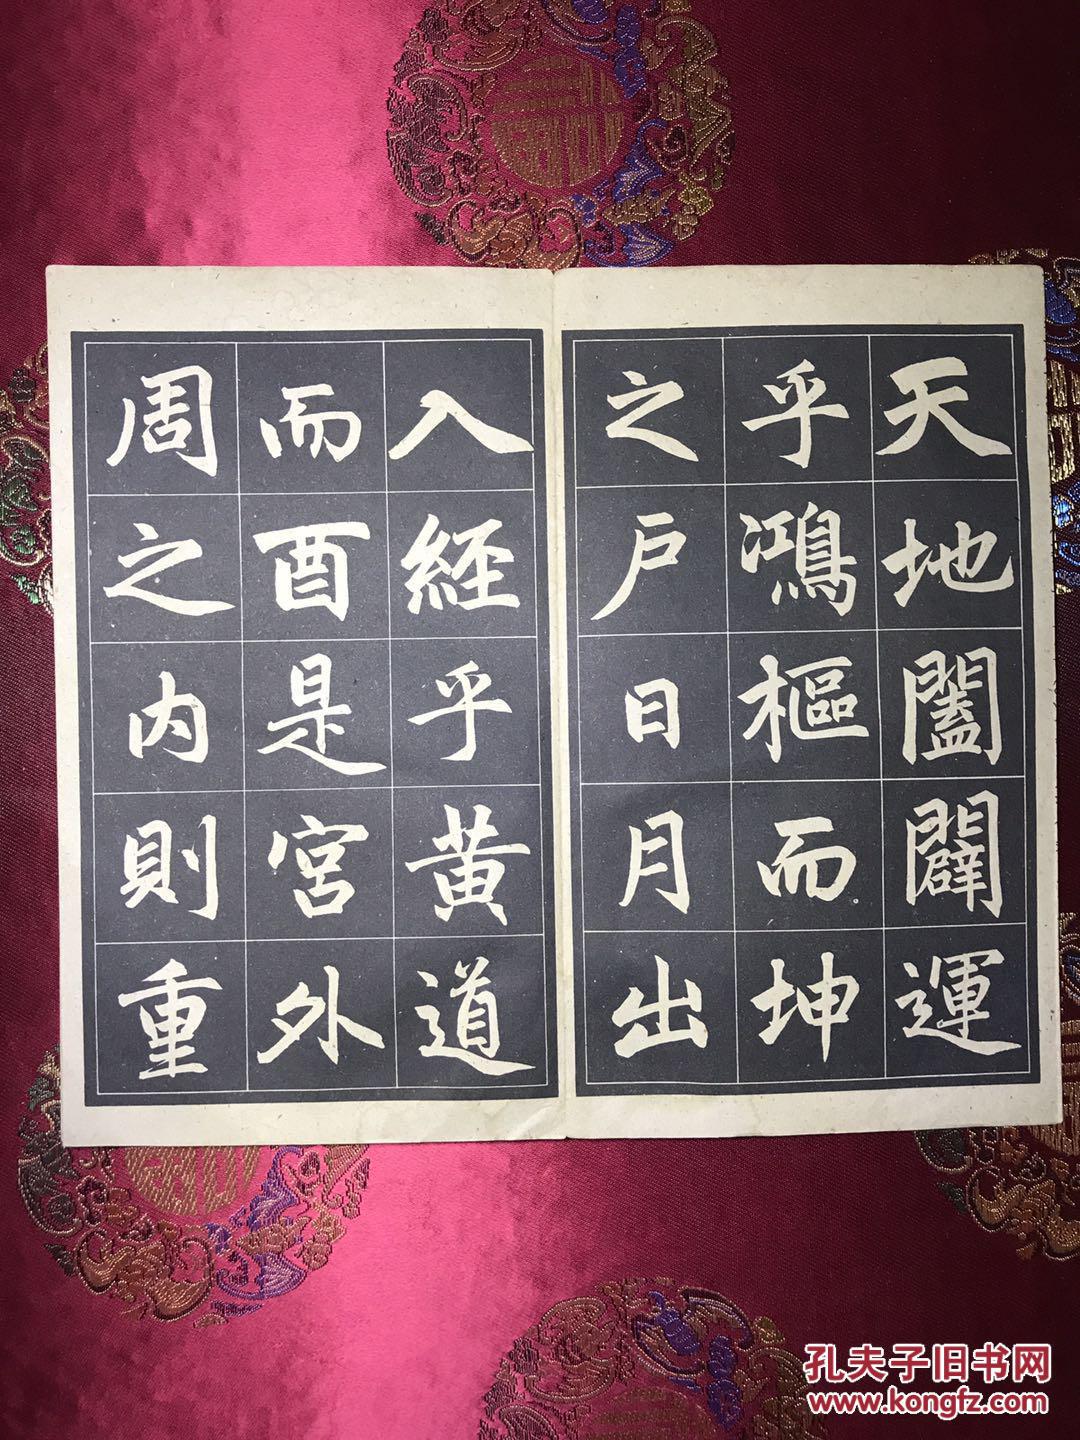 天地闔闢運
乎鴻樞而坤
之戶日月出
入經乎黃道
而酉是宮外
周之內則重
孔夫子旧书网
www.kongfz.com